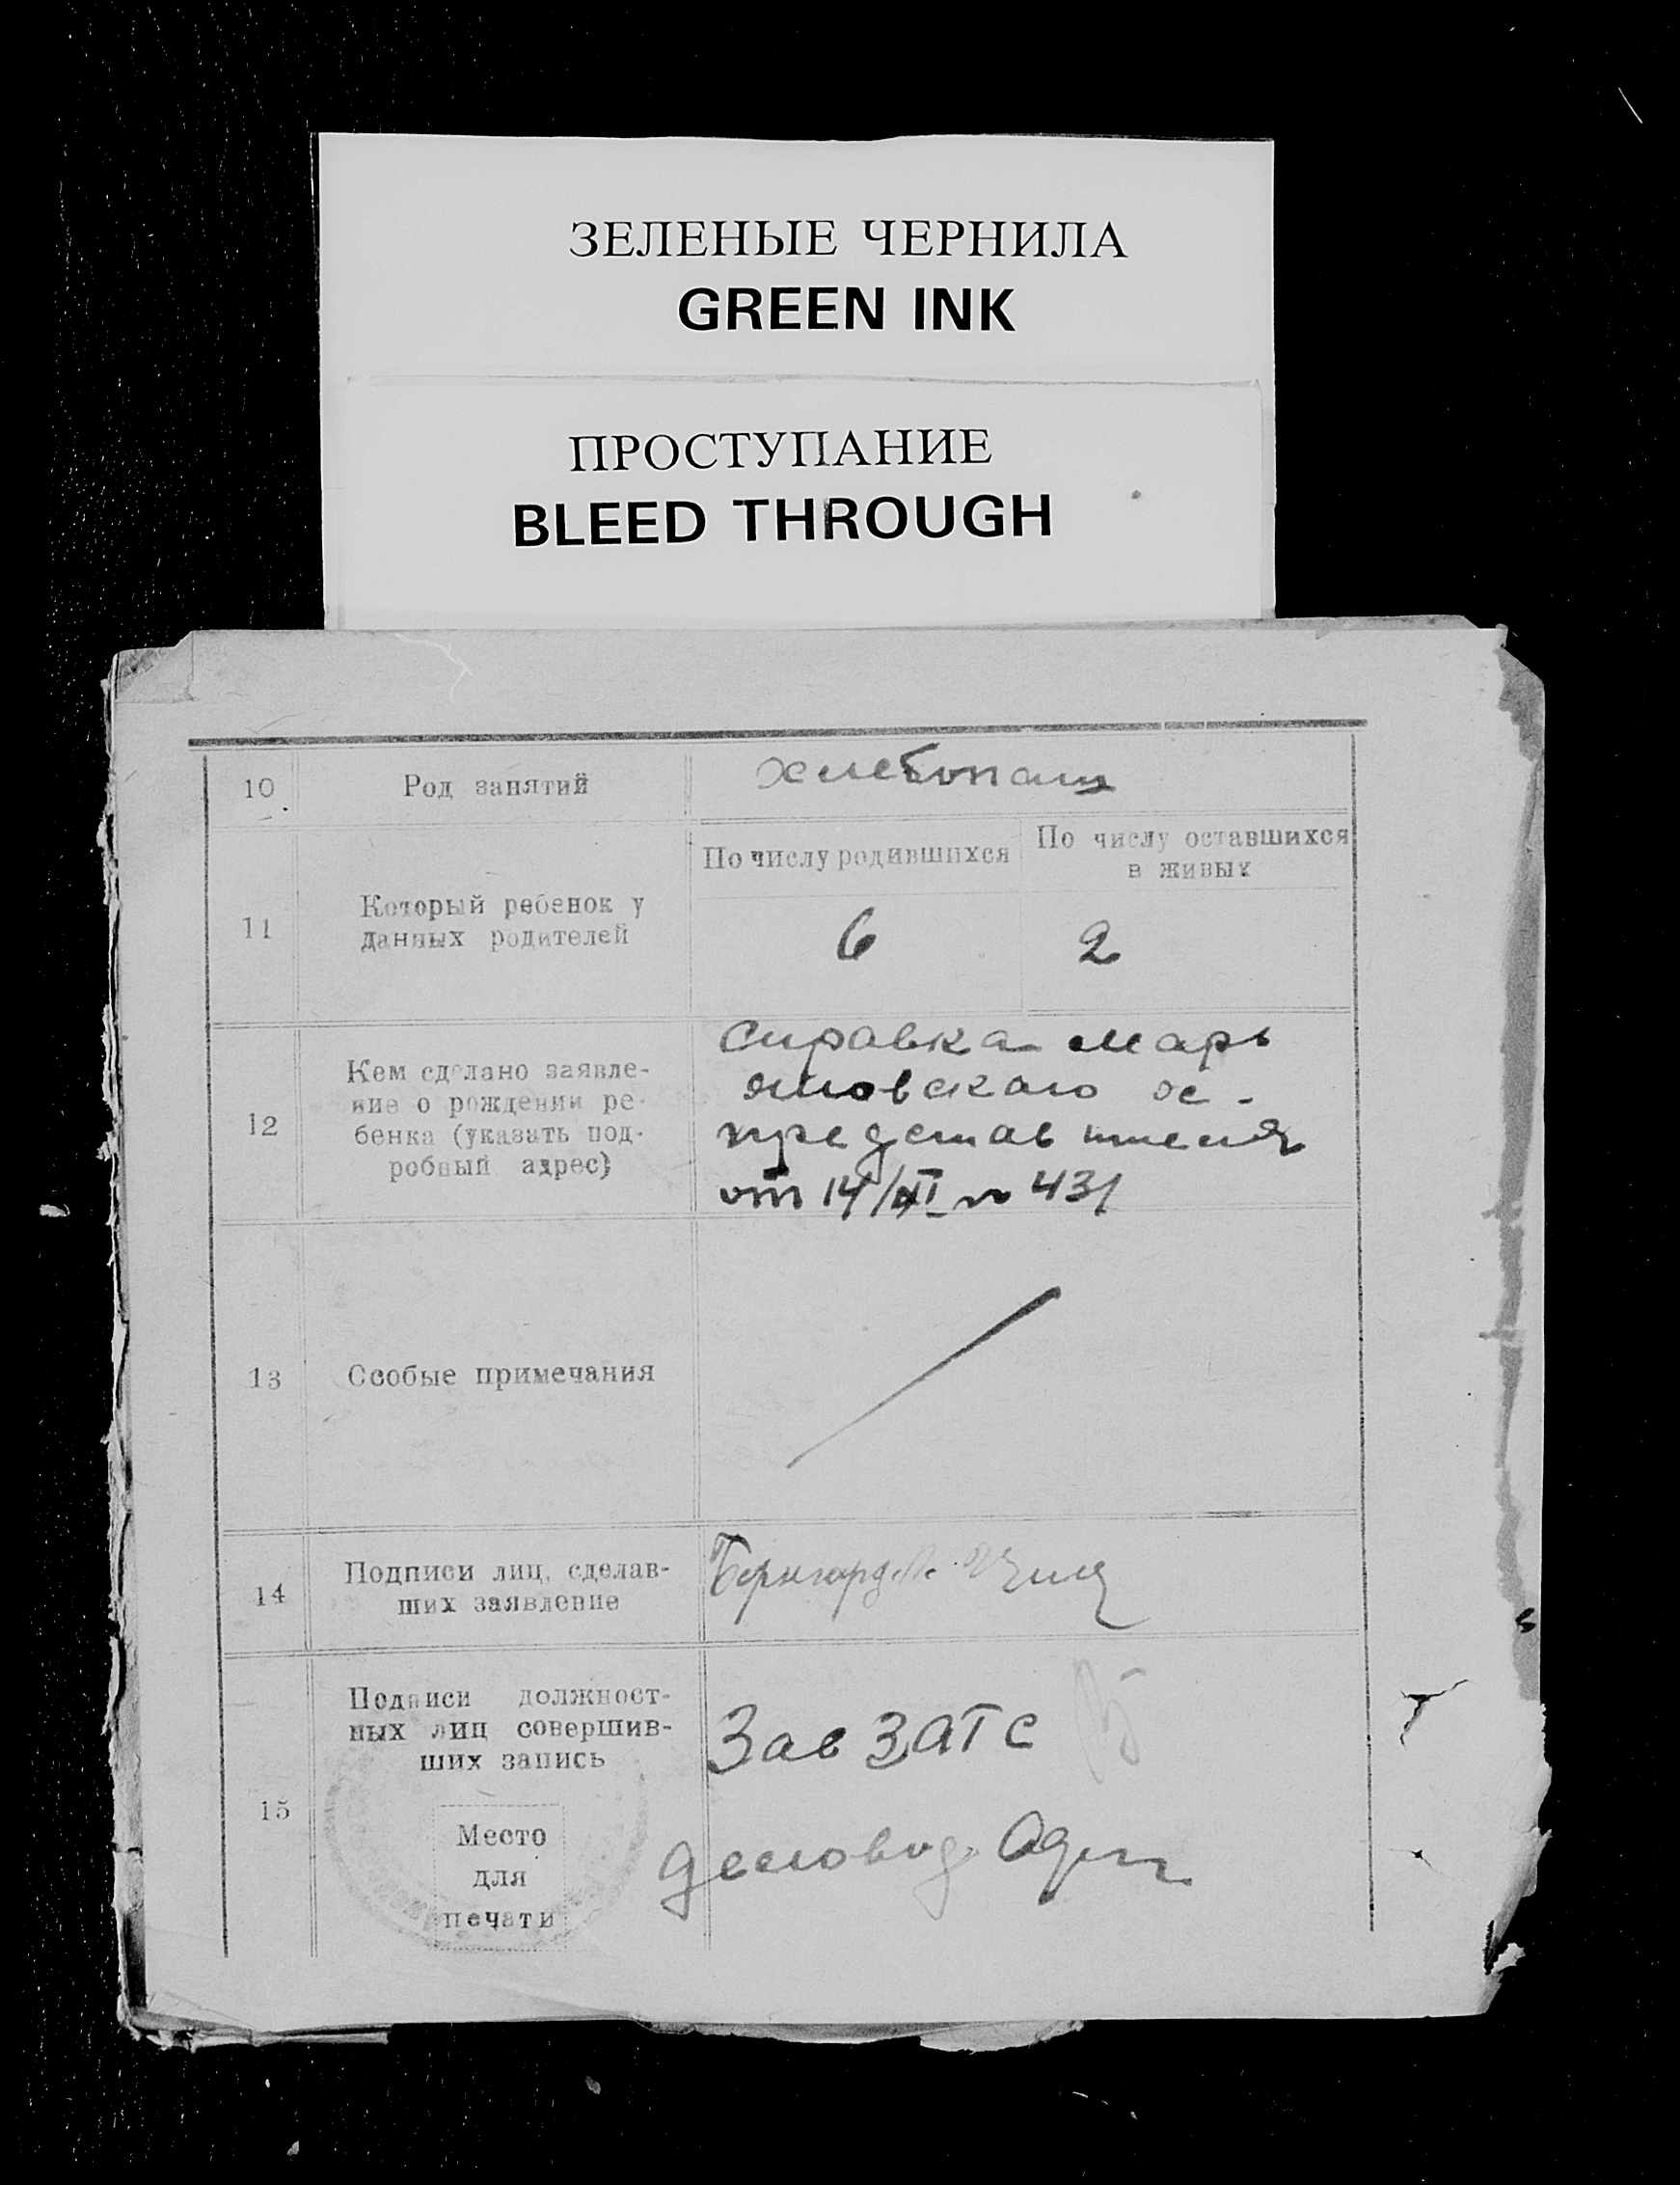 ЗЕЛЕНЫЕ ЧЕРНИЛА
GREEN INK
ПРОСТУПАНИЕ
BLEED THROUGH
10
Род занятий
хлебопаш
11
Который ребенок у
данных родителей
По числу родившихся
По числу оставшихся
в живых
6
2
12
Кем сделано заявле-
ние о рождении ре-
бенка (указать под-
робный адрес)
Справка Марь
яновскаго с.
представителя
от 14/XI № 431
13
Особые примечания
14
Подписи лиц, сделав-
ших заявление
15
Подписи должност-
ных лиц совершив-
ших запись
Место
для
печати
Зав ЗАГС
Деловод.